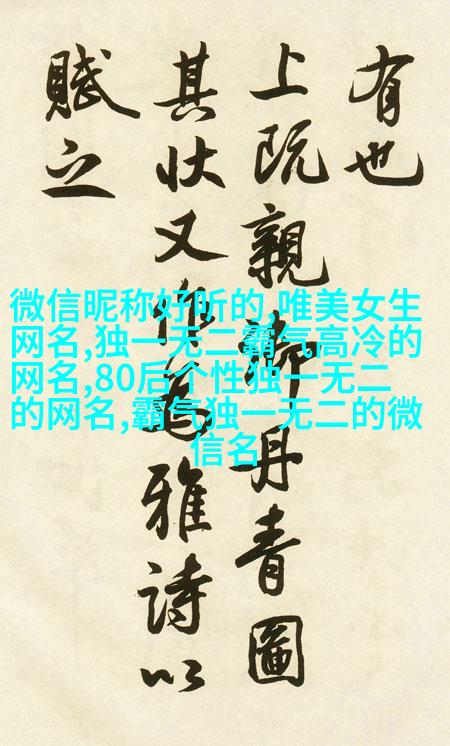 有也
上既親御丹青圖
其状又作為雅詩以
賦之
微信昵称好听的,唯美女生
网名,独一无二霸气高冷的
网名,80后个性独一无二
的网名,霸气独一无二的微
信名